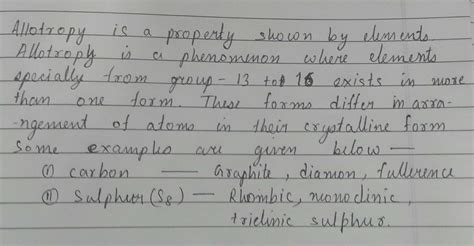 Allotropy is a property shown by elements.
Allotroply is a phenomenon where elements
specially from group-13 to 16 exists in more
than one form. These forms differ in arra-
-ngement of atoms in their crystalline form
Some examples are given below —
(i) carbon — Graphite, diamon, fullerence
(ii) Sulphur (S8) — Rhombic, monoclinic,
triclinic sulphur.